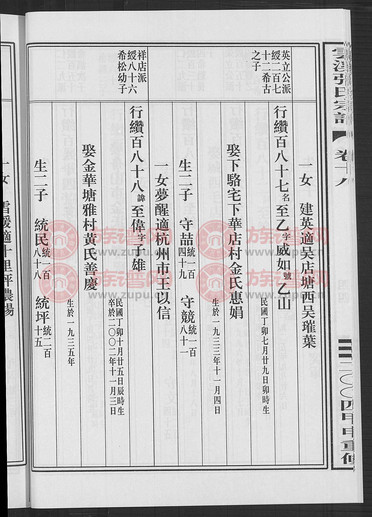 張氏宗譜 卷十八
二〇〇四甲申重修
一女 建英適吳店塘西吳璀葉
英立公派
綏二百七
十二希古
之子
行纘百八十七名至乙字威如號乙山
民國丁卯七月廿九日卯時生
娶下駱宅下華店村金氏惠娟
生於一九三三年十一月四日
生二子 守喆統一百四十九 守競統一百八十一
一女夢醒適杭州市王以信
祥店派
綏八十六
希松幼子
行纘百八十八諱至偉字十雄
民國丁卯十月廿五日辰時生
卒於二〇〇二年十一月三日
娶金華塘雅村黃氏善慶
生於一九三五年
生二子 統民統一百八十八 統坪統二百十五
一女 雪媛適十里坪農場
www.zupu.cn